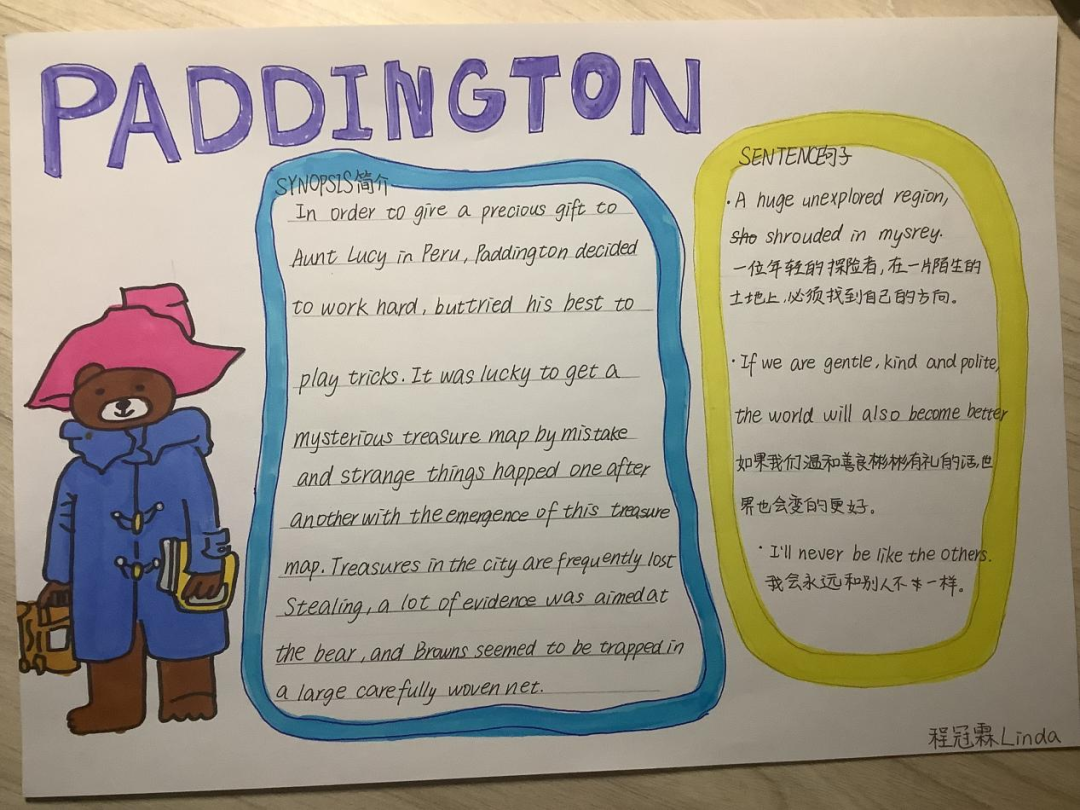 PADDINGTON
SYNOPSIS简介
In order to give a precious gift to
Aunt Lucy in Peru, Paddington decided
to work hard, buttried his best to
play tricks. It was lucky to get a
mysterious treasure map by mistake
and strange things happed one after
another with the emergence of this treasure
map. Treasures in the city are frequently lost
Stealing, a lot of evidence was aimed at
the bear, and Browns seemed to be trapped in
a large carefully woven net.
SENTENCE句子
·A huge unexplored region,
sho shrouded in mysrey.
一位年轻的探险者,在一片陌生的
土地上,必须找到自己的方向。
·If we are gentle, kind and polite,
the world will also become better
如果我们温和善良彬彬有礼的话,世
界也会变的更好。
·I'll never be like the others.
我会永远和别人不一样。
程冠霖Linda